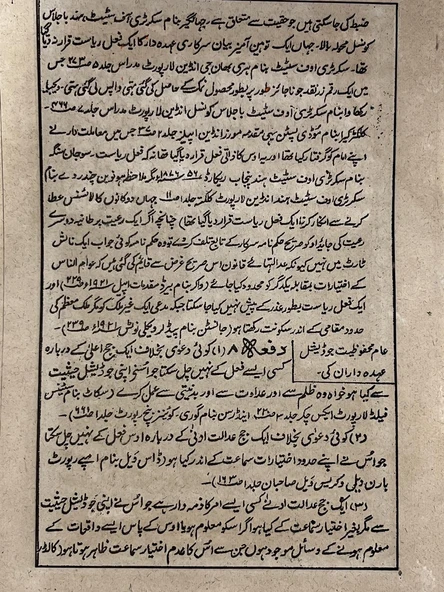 ضبط کی جاسکتی ہیں جو حقیت سے متعلق ہے۔ جہانگیر بنام سکرٹری آف سٹیٹ ہند با جلاس
کونسل محولہ بالا۔ جہاں ایک توہین آمیز بیان سرکاری عہدہ دار کا ایک فعل ریاست قرار نہ دیا گیا
تھا۔ سکرٹری اوف سٹیٹ بنام ہری بھان جی انڈین لارپورٹ مدراس جلد ۵ صـ۲۷۳ جس
میں ایک رقم زرنقد جو ناجائز طور پر بطور محصول نمک کے حاصل کی گئی تھی واپس لی گئی تھی۔
رکھاوا بنام سکرٹری آف سٹیٹ با جلاس کونسل انڈین لارپورٹ مدراس جلد ۷ صـ۴۶۶
کلکٹر بنام مقدمہ مورز انڈین اپیلز جلد ۲ جس میں
اپنے امام کو گرفتار کیا تھا اور یہ اس کا ذاتی فعل قرار دیا گیا تھا نہ کہ فعل ریاست۔ سوجان سنگھ
بنام سکرٹری اوف سٹیٹ ہند پنجاب ریکارڈ مگر ملاحظہ ہو نوبن چندر دے بنام
سکرٹری اوف سٹیٹ ہند انڈین لارپورٹ کلکتہ جلد ۱ صـ۱۱ جہاں دوکانوں کا لائسنس عطا
کرنے سے انکار کرنا ایک فعل ریاست قرار دیا گیا تھا) چنانچہ اگر ایک رعیت برطانیہ دوسری
رعیت کی جائداد کو صریح حکم نامہ سرکار کے تابع تلف کرے تو وہ حکم نامہ کوئی جواب ایک نالش
ٹارٹ میں نہیں کیونکہ عدالتہائے قانون اس صریح غرض سے قائم کی گئی ہیں کہ عوام الناس
کے اختیارات بمقابلہ یکدیگر کو محدود کیا جائے (واکر بنام بیرڈ مقدمات اپیل ۱۸۹۲ء ۴۹۱)
ایک فعل ریاست بطور عذر کے پیش نہیں کیا جا سکتا جبکہ مدعی ایک غیر ملک کو مگر ملک معظم کی
حدود مقامی کے اندر سکونت رکھتا ہو (جانسٹن بنام پیڈلر ویکلی نوٹس ۱۹۲۱ء ۲۳۹)۔
عام محفوظیت جوڈیشل
عہدہ داران کی۔
دفعہ ۸ (۱) کوئی دعویٰ بخلاف ایک جج اعلیٰ کے دربارہ
کسی ایسے فعل کے نہیں چل سکتا جو اسنے اپنی جوڈیشل حیثیت
سے کیا ہو خواہ وہ ظلم سے اور عداوت سے اور بدنیتی سے عمل کرے (سکاٹ بنام سٹینس
فیلڈ لارپورٹ ایکسچیکر جلد ۳ صـ۲۲۰، اینڈرسن بنام گوری۔ کوئینز بنچ رپورٹ جلد ۱ صـ۶۶۸)۔
(۲) کوئی دعویٰ بخلاف ایک جج عدالت ادنیٰ کے دربارہ اوس فعل کے نہیں چل سکتا
جو اسنے اپنے حدود اختیارات سماعت کے اندر کیا ہو (ڈاس ویل بنام امپے رپورٹ
بارن ویلی و کریس ویل صاحبان جلد ۱ صـ۱۶۳)۔
(۳) ایک جج عدالت ادنیٰ کسی ایسے امر کا ذمہ وار ہے جو اسنے اپنی جوڈیشل حیثیت
سے مگر بغیر اختیار سماعت کے کیا ہو اگر اسکو معلوم ہو یا اوس کے پاس ایسے واقعات کے
معلوم ہونے کے وسائل موجود ہوں جن سے اس کا عدم اختیار سماعت ظاہر ہوتا ہو (کالڈر